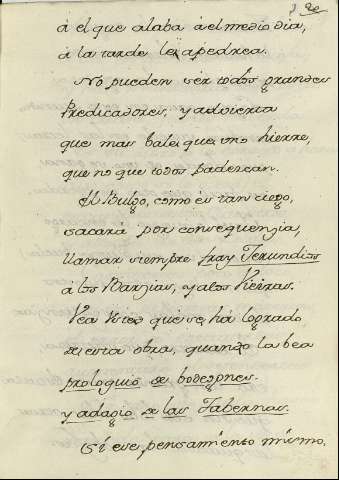 à el que alaba à el medio dia,
à la tarde le apedrea.
No pueden sér todos grandes
Predicadores, y advierta
que mas bale, que uno hierre,
que no que todos padezcan.
El Bulgo, como es tan ciego,
sacará por consequenzia,
llamar siempre fray Jerundios
à los Barzias, y a los Vieiras.
Vea Usted que se hà logrado
de esta obra, quando la bea
prologuio de bodegones.
y adagio de las Tabernas.
Si ese pensamiento mismo,